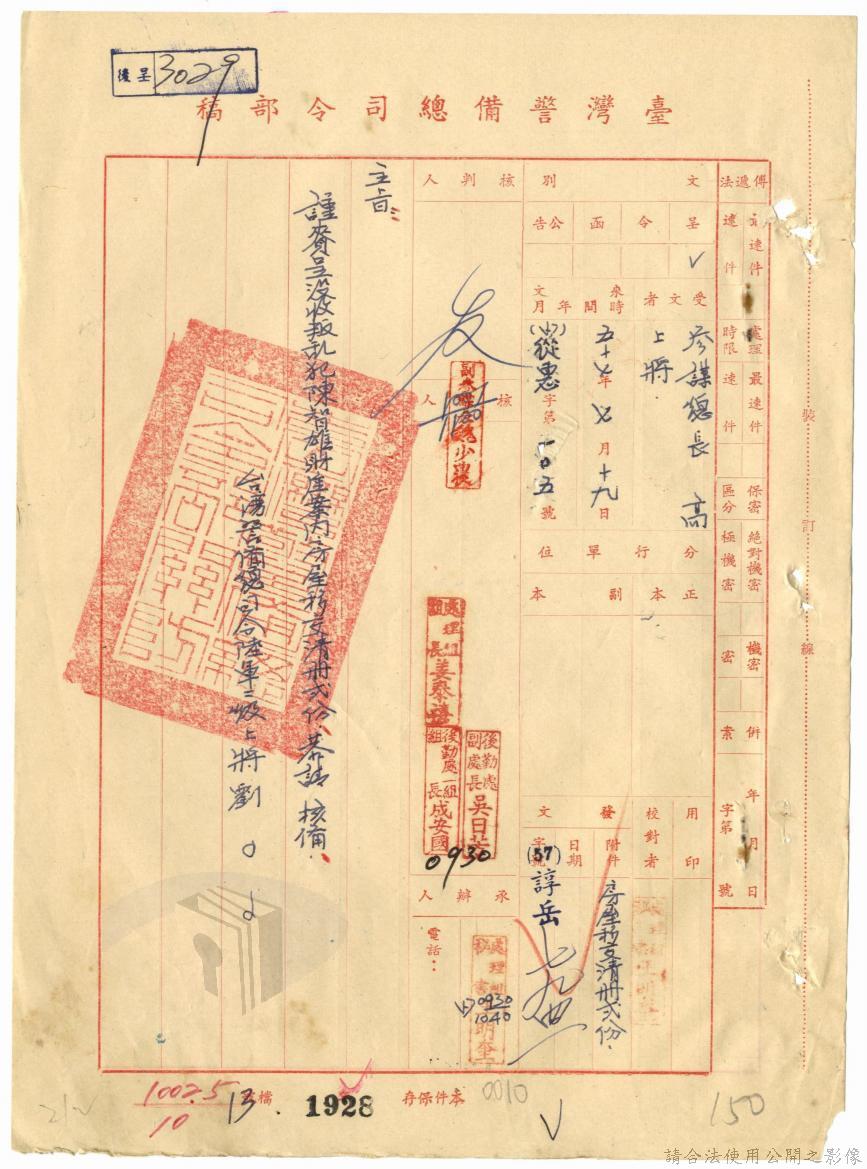 後呈 3029
臺灣警備總司令部稿
傳遞法
最速件
速件
處理時限
最速件
速件
保密區分
絕對機密
極機密
機密
密
併
案
年月日
字第號
文別
呈 ✓
令
函
公告
受文者
參謀總長 高
上將
來文時間年月
五十七年七月十九日
(57)從惠字第一〇五號
分行單位
正本
副本
發文
用印
校對者
附件
房屋移交清冊弍份.
日期
字號
(57)諄岳
核判人
核人
後勤處副處長吳日
後勤處一組組長成安國
0930
承辦人
電話:
0930
1040
主旨:
謹賫呈沒收叛亂犯陳智雄財產案內房屋移交清冊弍份,恭請 核備.
台灣警備總司令陸軍二級上將劉〇〇
裝訂線
10025
10
13
檔
1928
本件保存
0010
150
請合法使用公開之影像